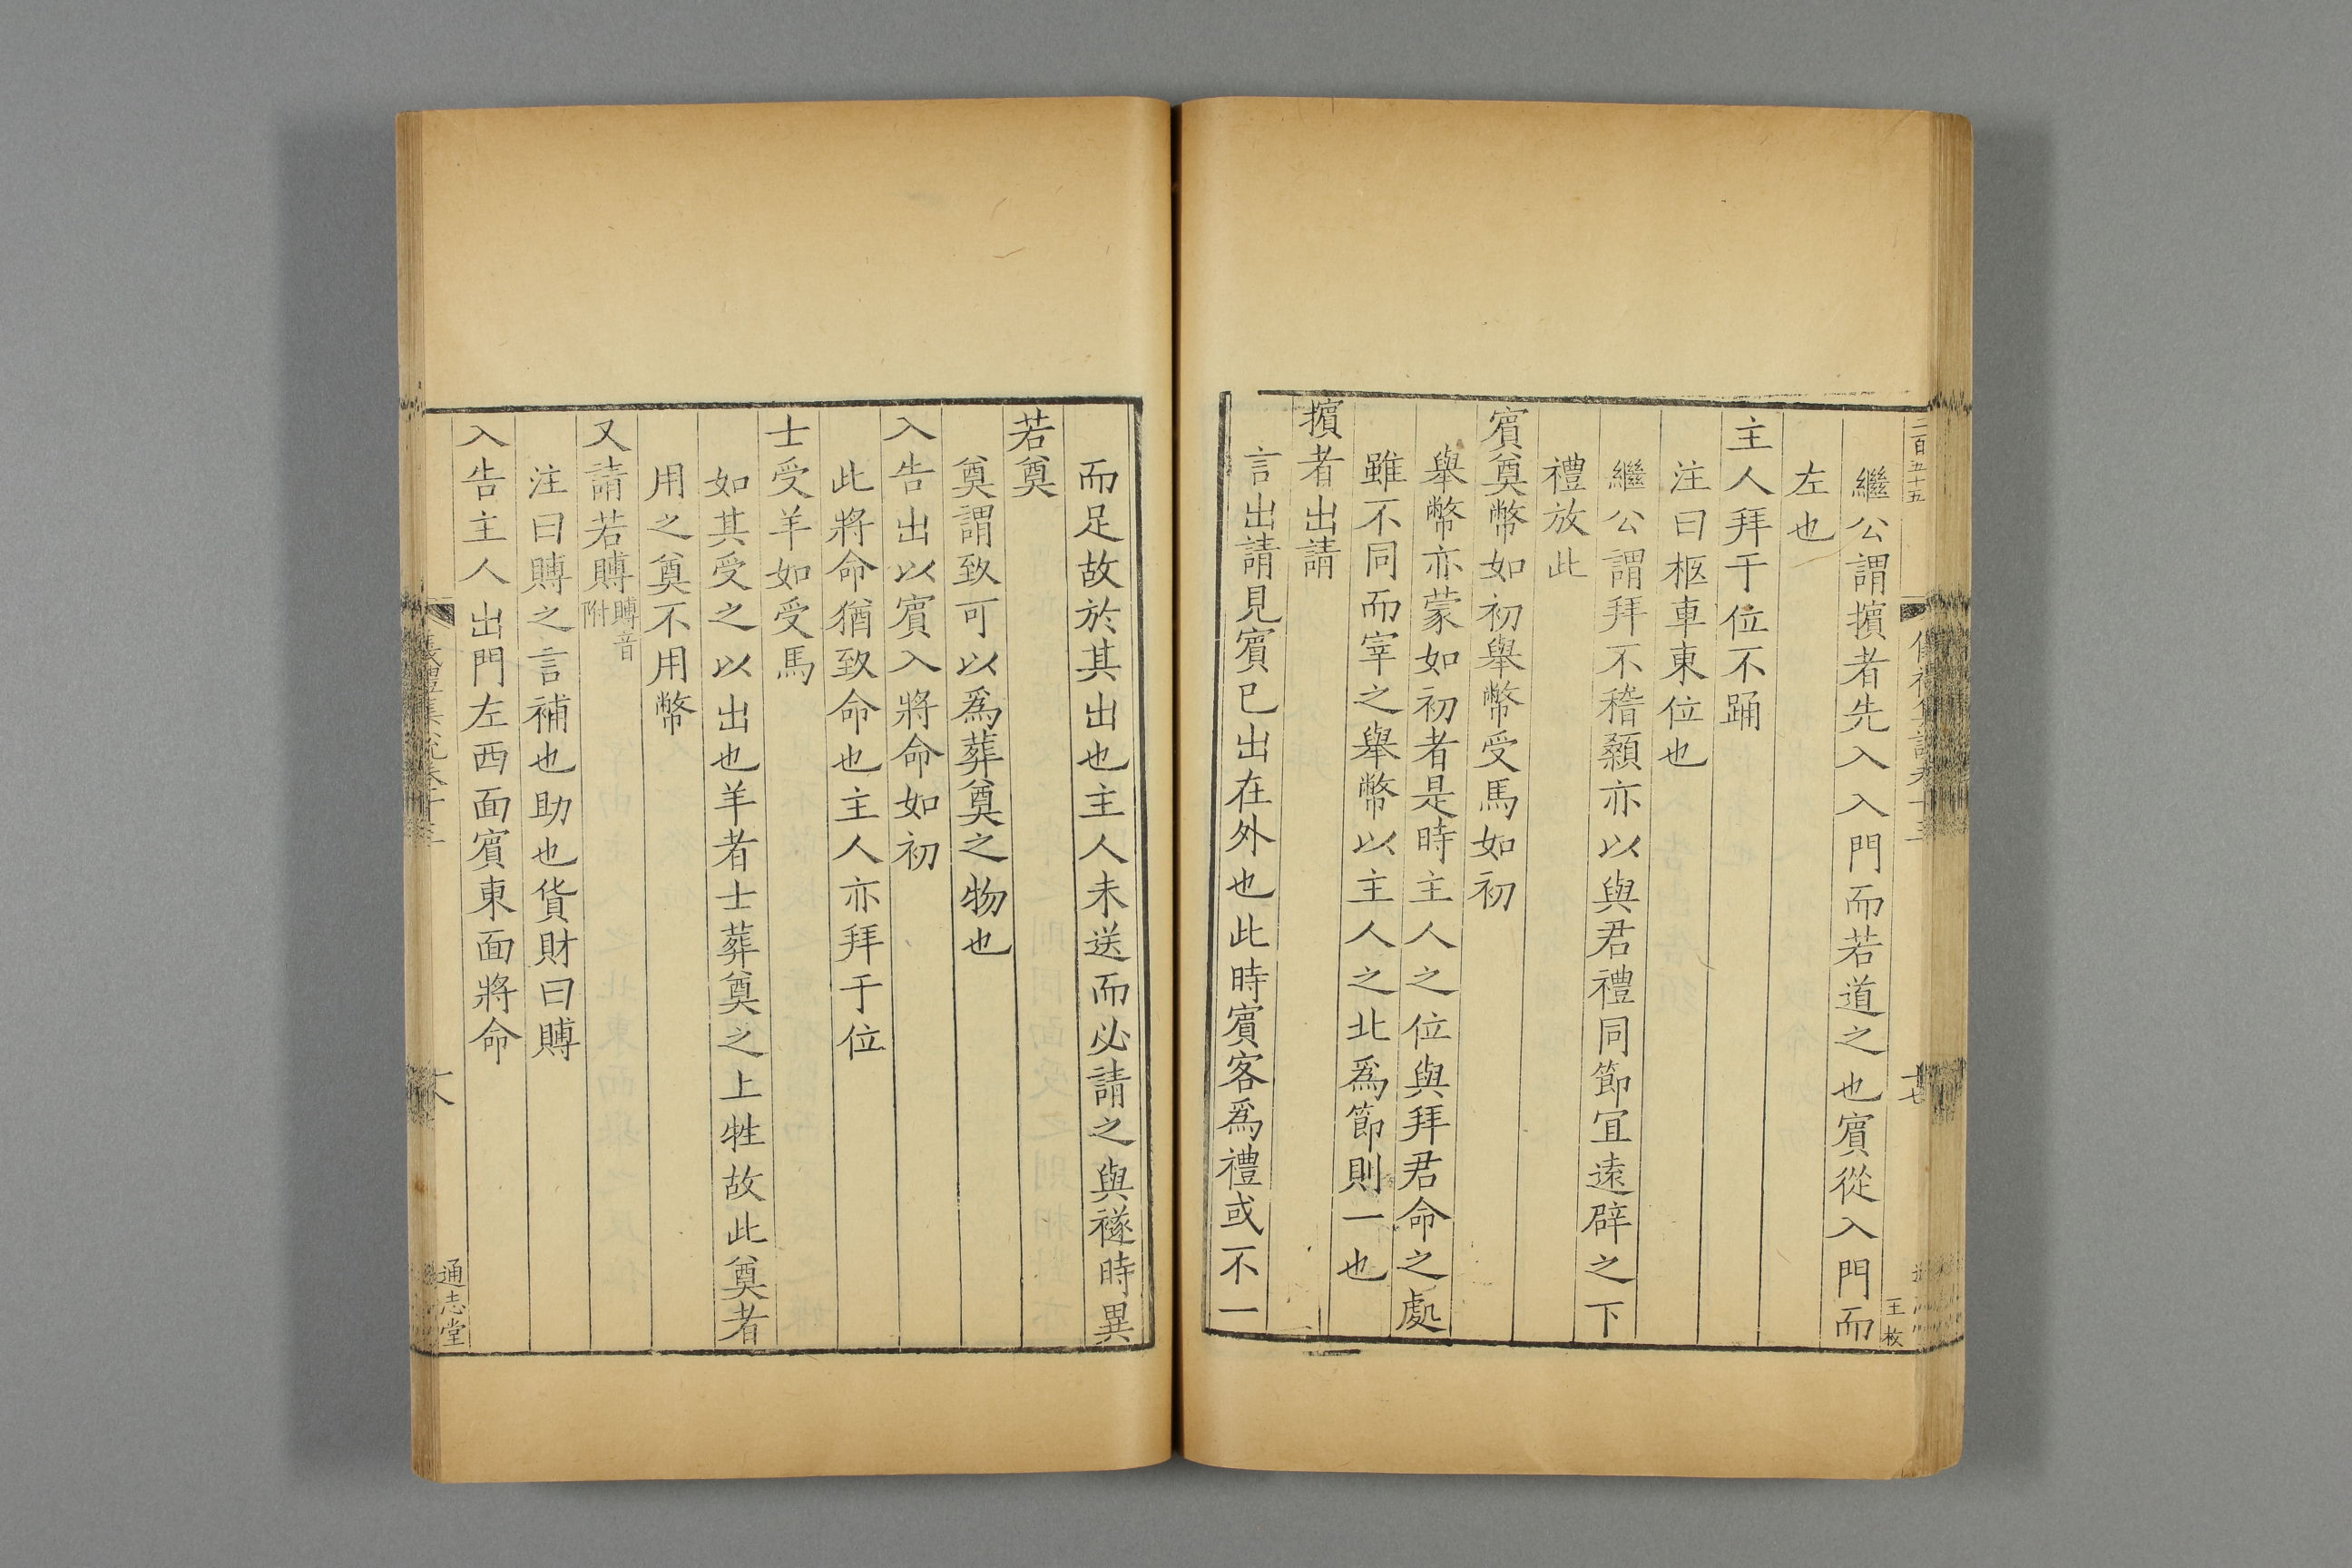 二百五十五
繼公謂擯者先入入門而若道之也賓從入門而
左也
主人拜于位不踊
注曰柩車東位也
繼公謂拜不稽顙亦以與君禮同節宜遠辟之下
禮放此
賓奠幣如初舉幣受馬如初
舉幣亦蒙如初者是時主人之位與拜君命之處
雖不同而宰之舉幣以主人之北為節則一也
擯者出請
言出請見賓已出在外也此時賓客為禮或不一
十七
王枚
而足故於其出也主人未送而必請之與襚時異
若奠
奠謂致可以為葬奠之物也
入告出以賓入將命如初
此將命猶致命也主人亦拜于位
士受羊如受馬
如其受之以出也羊者士葬奠之上牲故此奠者
用之奠不用幣
又請若賻賻音附
注曰賻之言補也助也貨財曰賻
入告主人出門左西面賓東面將命
通志堂